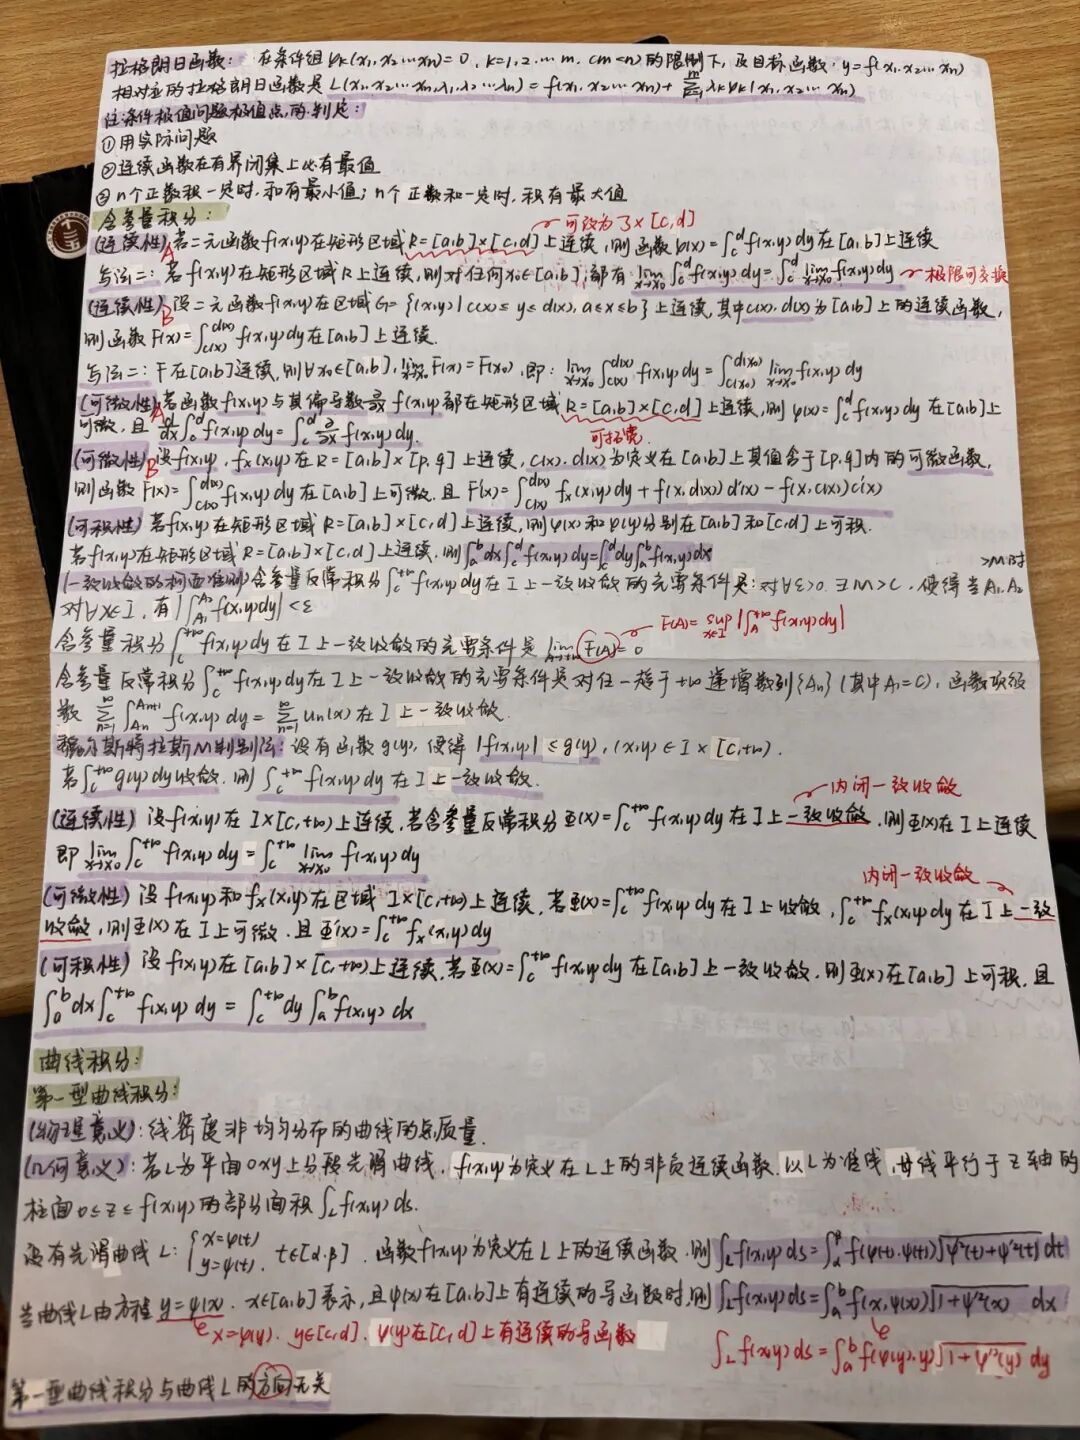 拉格朗日函数： 在条件组 φk(x1,x2…xn)=0, k=1,2…m, (m<n) 的限制下, 及目标函数: y=f(x1,x2…xn)
相对应的拉格朗日函数是 L(x1,x2…xn,λ1,λ2…λn) = f(x1,x2…xn)+ Σ λkφk(x1,x2…xn)
注:条件极值问题极值点的判定:
①用实际问题
②连续函数在有界闭集上必有最值
③n个正数积一定时,和有最小值; n个正数和一定时,积有最大值
含参量积分:
可改为 J×[c,d]
(连续性)A 若二元函数f(x,y)在矩形区域R=[a,b]×[c,d]上连续, 则函数 φ(x)=∫_c^d f(x,y)dy在[a,b]上连续
写法二: 若f(x,y)在矩形区域R上连续,则对任何x0∈[a,b],都有 lim_{x→x0}∫_c^d f(x,y)dy=∫_c^d lim_{x→x0} f(x,y)dy 极限可交换
(连续性)B 设二元函数f(x,y)在区域G={(x,y)|c(x)≤y≤d(x), a≤x≤b}上连续,其中c(x),d(x)为[a,b]上的连续函数,
则函数F(x)=∫_{c(x)}^{d(x)} f(x,y)dy在[a,b]上连续.
写法二: F在[a,b]连续,则∀x0∈[a,b], lim_{x→x0} F(x)=F(x0), 即: lim_{x→x0}∫_{c(x)}^{d(x)} f(x,y)dy=∫_{c(x0)}^{d(x0)} lim_{x→x0} f(x,y)dy
(可微性)A 若函数f(x,y)与其偏导数 ∂/∂x f(x,y)都在矩形区域R=[a,b]×[c,d]上连续,则 φ(x)=∫_c^d f(x,y)dy 在[a,b]上
可微, 且 d/dx∫_c^d f(x,y)dy=∫_c^d ∂/∂x f(x,y)dy. 可拓宽.
(可微性)B 设f(x,y), fx(x,y)在R=[a,b]×[p,q]上连续, c(x),d(x)为定义在[a,b]上其值含于[p,q]内的可微函数,
则函数F(x)=∫_{c(x)}^{d(x)} f(x,y)dy在[a,b]上可微. 且F'(x)=∫_{c(x)}^{d(x)} fx(x,y)dy+f(x,d(x))d'(x)-f(x,c(x))c'(x)
(可积性) 若f(x,y)在矩形区域R=[a,b]×[c,d]上连续,则φ(x)和ψ(y)分别在[a,b]和[c,d]上可积.
若f(x,y)在矩形区域R=[a,b]×[c,d]上连续,则∫_a^b dx∫_c^d f(x,y)dy=∫_c^d dy∫_a^b f(x,y)dx
>M时
(一致收敛的柯西准则)含参量反常积分∫_c^{+∞} f(x,y)dy在I上一致收敛的充要条件是: 对∀ε>0, ∃M>c, 使得当A1,A2
对∀x∈I, 有|∫_{A1}^{A2} f(x,y)dy|<ε
F(A)=sup_{x∈I}|∫_A^{+∞} f(x,y)dy|
含参量积分∫_c^{+∞} f(x,y)dy在I上一致收敛的充要条件是 lim_{A→+∞} F(A)=0
含参量反常积分∫_c^{+∞} f(x,y)dy在I上一致收敛的充要条件是对任一趋于+∞递增数列{An}(其中A1=c), 函数项级
数 Σ_{n=1}^∞ ∫_{An}^{An+1} f(x,y)dy=Σ_{n=1}^∞ un(x)在I上一致收敛.
斯特拉斯M判别法: 设有函数g(y), 使得 |f(x,y)|≤g(y), (x,y)∈I×[c,+∞).
若∫_c^{+∞} g(y)dy收敛, 则∫_c^{+∞} f(x,y)dy在I上一致收敛.
内闭一致收敛
(连续性) 设f(x,y)在I×[c,+∞)上连续, 若含参量反常积分Φ(x)=∫_c^{+∞} f(x,y)dy在I上一致收敛, 则Φ(x)在I上连续
即 lim_{x→x0}∫_c^{+∞} f(x,y)dy=∫_c^{+∞} lim_{x→x0} f(x,y)dy
内闭一致收敛
(可微性) 设f(x,y)和fx(x,y)在区域I×[c,+∞)上连续, 若Φ(x)=∫_c^{+∞} f(x,y)dy在I上收敛, ∫_c^{+∞} fx(x,y)dy在I上一致
收敛, 则Φ(x)在I上可微, 且Φ'(x)=∫_c^{+∞} fx(x,y)dy
(可积性) 设f(x,y)在[a,b]×[c,+∞)上连续, 若Φ(x)=∫_c^{+∞} f(x,y)dy在[a,b]上一致收敛, 则Φ(x)在[a,b]上可积, 且
∫_a^b dx∫_c^{+∞} f(x,y)dy=∫_c^{+∞} dy∫_a^b f(x,y)dx
曲线积分:
第一型曲线积分:
(物理意义): 线密度非均匀分布的曲线的总质量.
(几何意义): 若L为平面Oxy上分段光滑曲线, f(x,y)为定义在L上的非负连续函数. 以L为准线,母线平行于z轴的
柱面0≤z≤f(x,y)的部分面积∫_L f(x,y)ds.
设有光滑曲线L: {x=φ(t) y=ψ(t), t∈[α,β], 函数f(x,y)为定义在L上的连续函数, 则∫_L f(x,y)ds=∫_α^β f(φ(t),ψ(t))√(φ'²(t)+ψ'²(t))dt
当曲线L由方程y=ψ(x), x∈[a,b]表示, 且ψ(x)在[a,b]上有连续的导函数时,则∫_L f(x,y)ds=∫_a^b f(x,ψ(x))√(1+ψ'²(x)) dx
x=φ(y), y∈[c,d], φ(y)在[c,d]上有连续的导函数
∫_L f(x,y)ds=∫_a^b f(φ(y),y)√(1+φ'²(y)) dy
第一型曲线积分与曲线L的方向无关